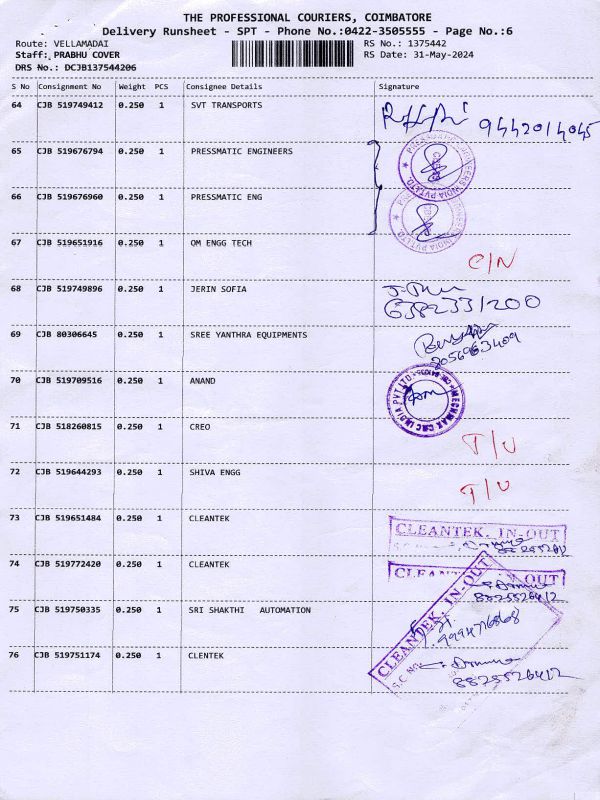 THE PROFESSIONAL COURIERS, COIMBATORE
Delivery Runsheet - SPT - Phone No.:0422-3505555 - Page No.:6
Route: VELLAMADAI RS No.: 1375442
Staff: PRABHU COVER RS Date: 31-May-2024
DRS No.: DCJB137544206
S No Consignment No Weight PCS Consignee Details Signature
64 CJB 519749412 0.250 1 SVT TRANSPORTS
9442014045
65 CJB 519676794 0.250 1 PRESSMATIC ENGINEERS
66 CJB 519676960 0.250 1 PRESSMATIC ENG
67 CJB 519651916 0.250 1 OM ENGG TECH
C/N
68 CJB 519749896 0.250 1 JERIN SOFIA
6382331200
69 CJB 80306645 0.250 1 SREE YANTHRA EQUIPMENTS
8056963409
70 CJB 519709516 0.250 1 ANAND
MECHMAK CNC INDIA PVT LTD
71 CJB 518260815 0.250 1 CREO
T/U
72 CJB 519644293 0.250 1 SHIVA ENGG
T/U
73 CJB 519651484 0.250 1 CLEANTEK
CLEANTEK. IN-OUT
74 CJB 519772420 0.250 1 CLEANTEK
CLEANTEK. IN-OUT
8825526412
75 CJB 519750335 0.250 1 SRI SHAKTHI AUTOMATION
9994716868
CLEANTEK. IN-OUT
S.C NO.
76 CJB 519751174 0.250 1 CLENTEK
8825526412